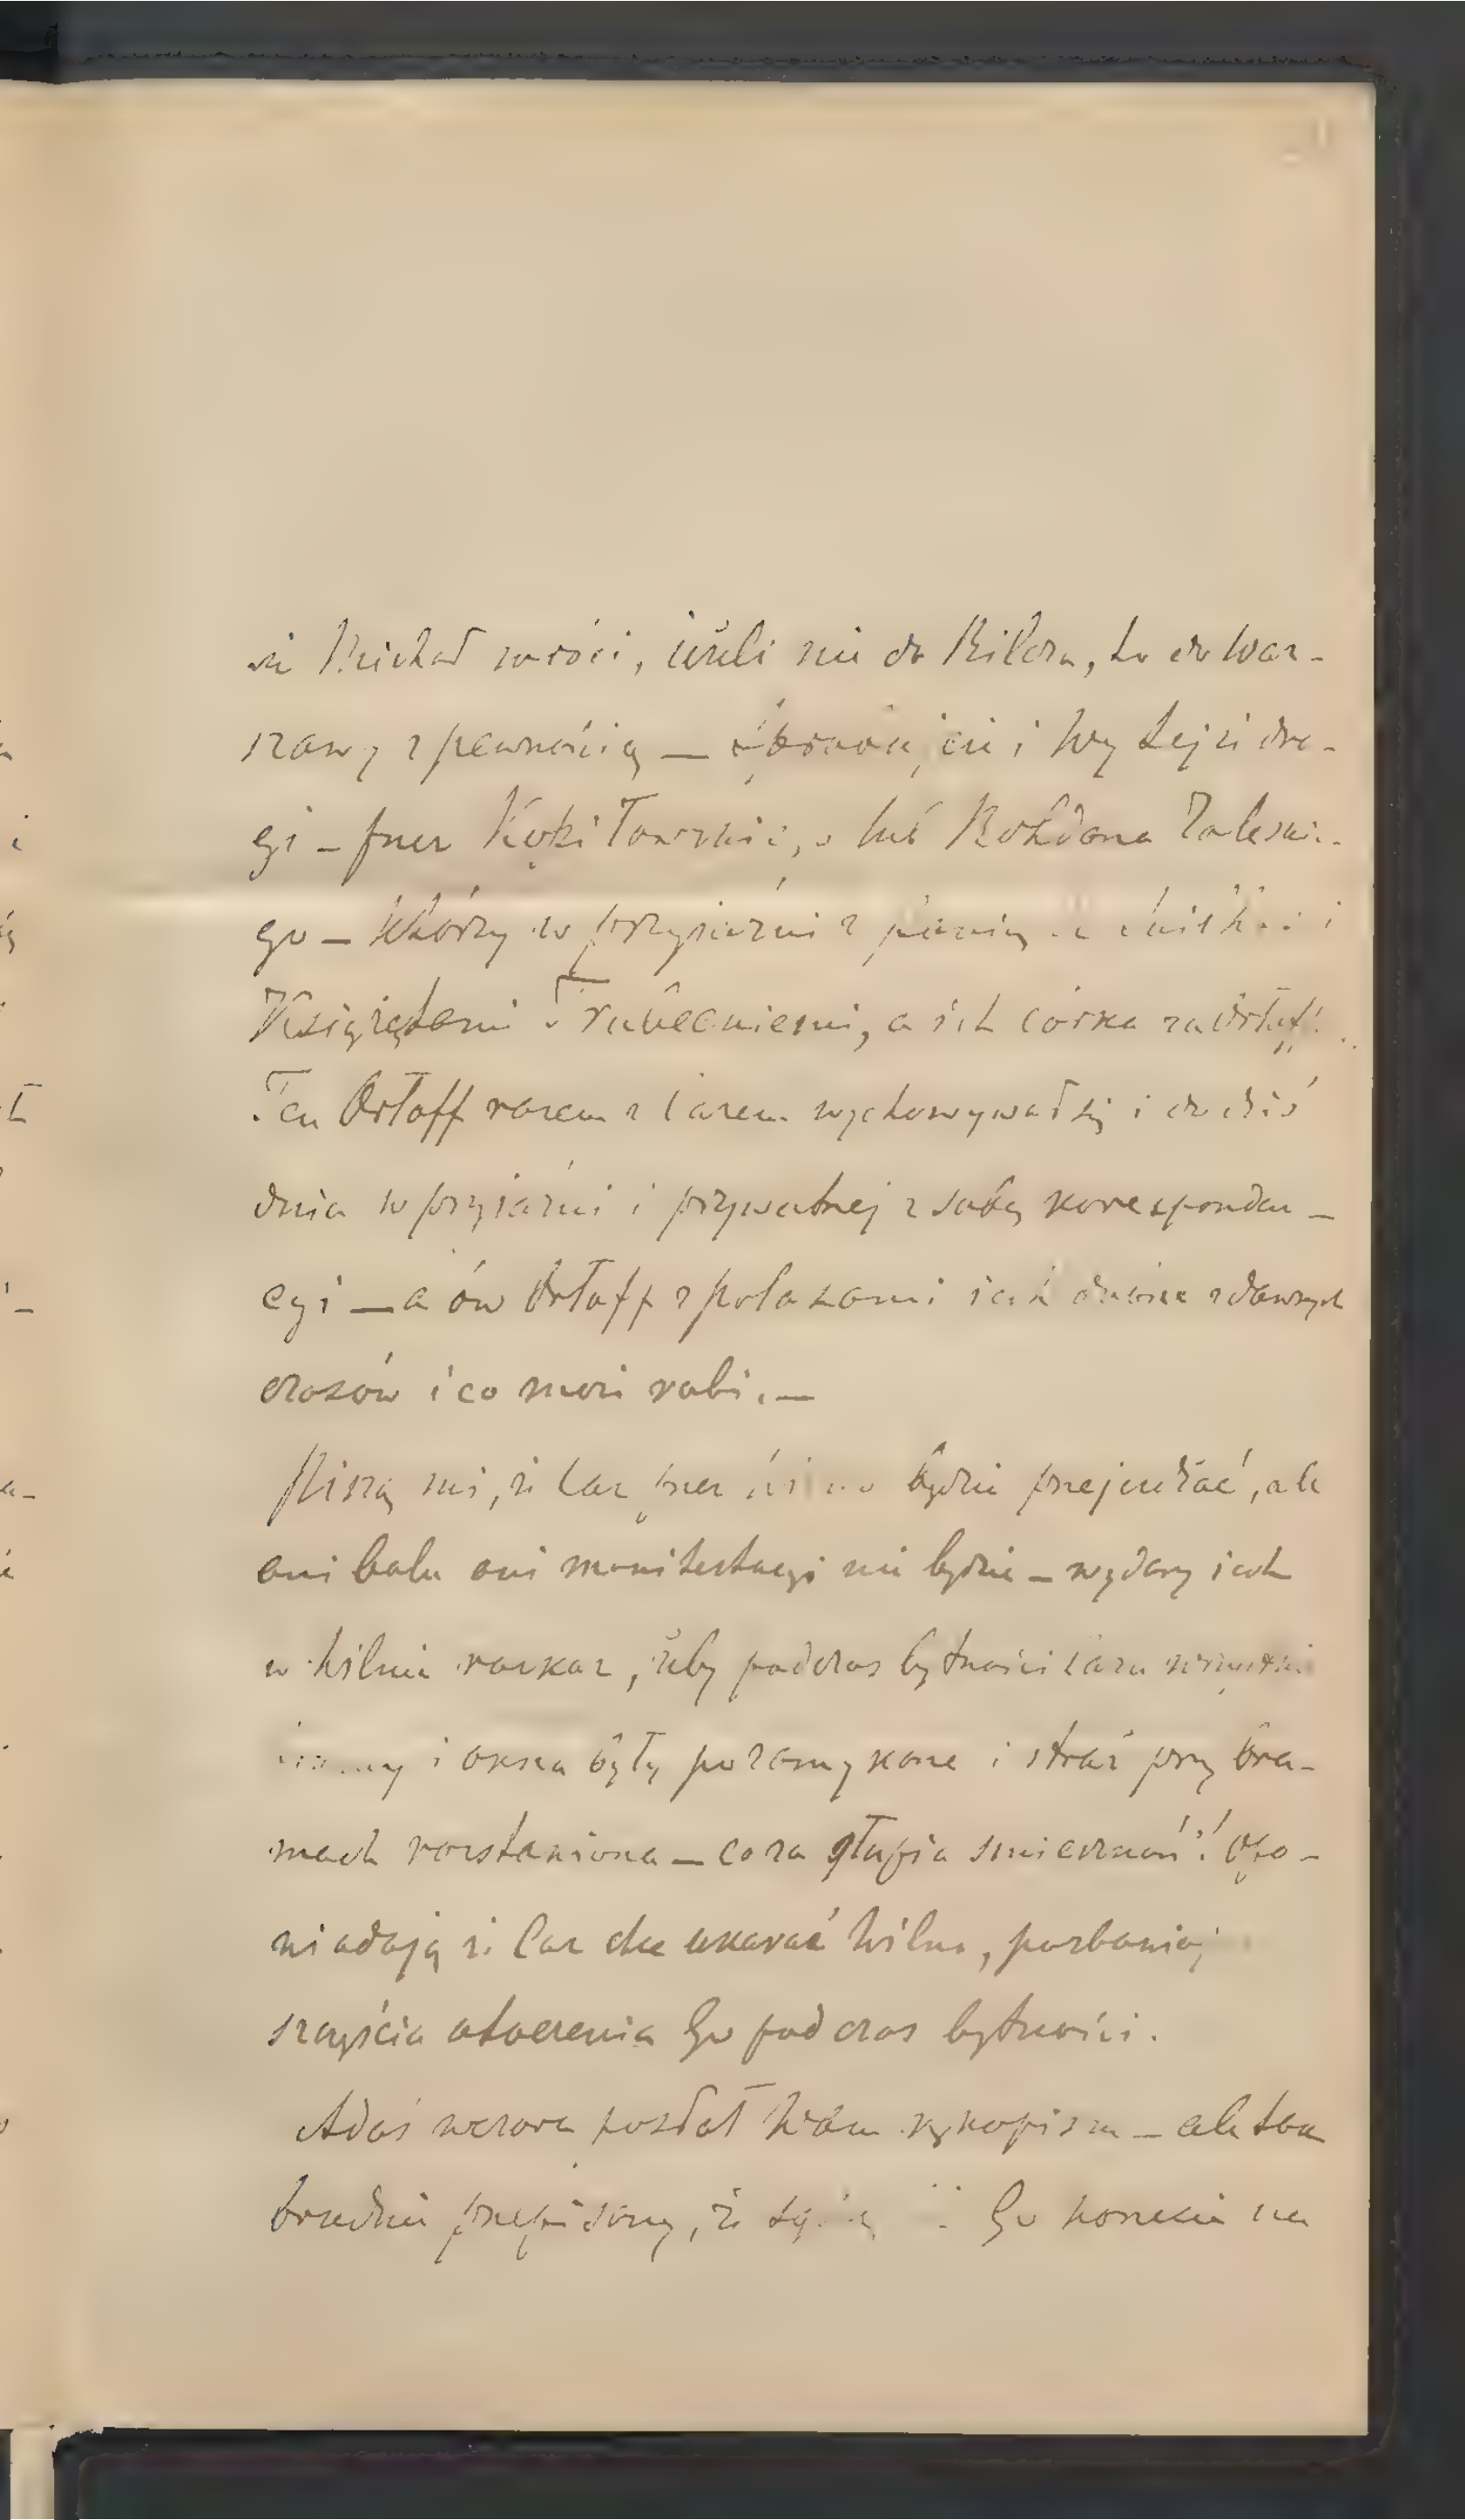 że Michał wróci, jeżeli nie do Wilna, to do War-
szawy z pewnością — i Wy tejże dro-
gi — przez lub Bohdana Zaleskie-
go — którzy w przyjaźni z panią i
Książętami Trubeckiemi, a ich córka za Orłoff.
Ten Orłoff razem z Carem wychowywał się i do dziś
dnia w przyjaźni i prywatnej z sobą koresponden-
cyi — a ów Orłoff z polakami jak z dawnych
czasów i co może robi. —
Piszą mi, że Car przez będzie przejeżdżać, ale
ani balu ani manifestacyi nie będzie — wydany jest
w Wilnie rozkaz, żeby podczas bytności Cara wszystkie
i okna były pozamykane i straż przy bra-
mach rozstawiona — co za głupia śmieszność! Opo-
wiadają że Car chce ukarać Wilno, pozbawiając
szczęścia otoczenia Go podczas bytności.
Adaś wczora posłał Wam rękopism — ale tak
brzydko przepisany, że Go koniecznie na